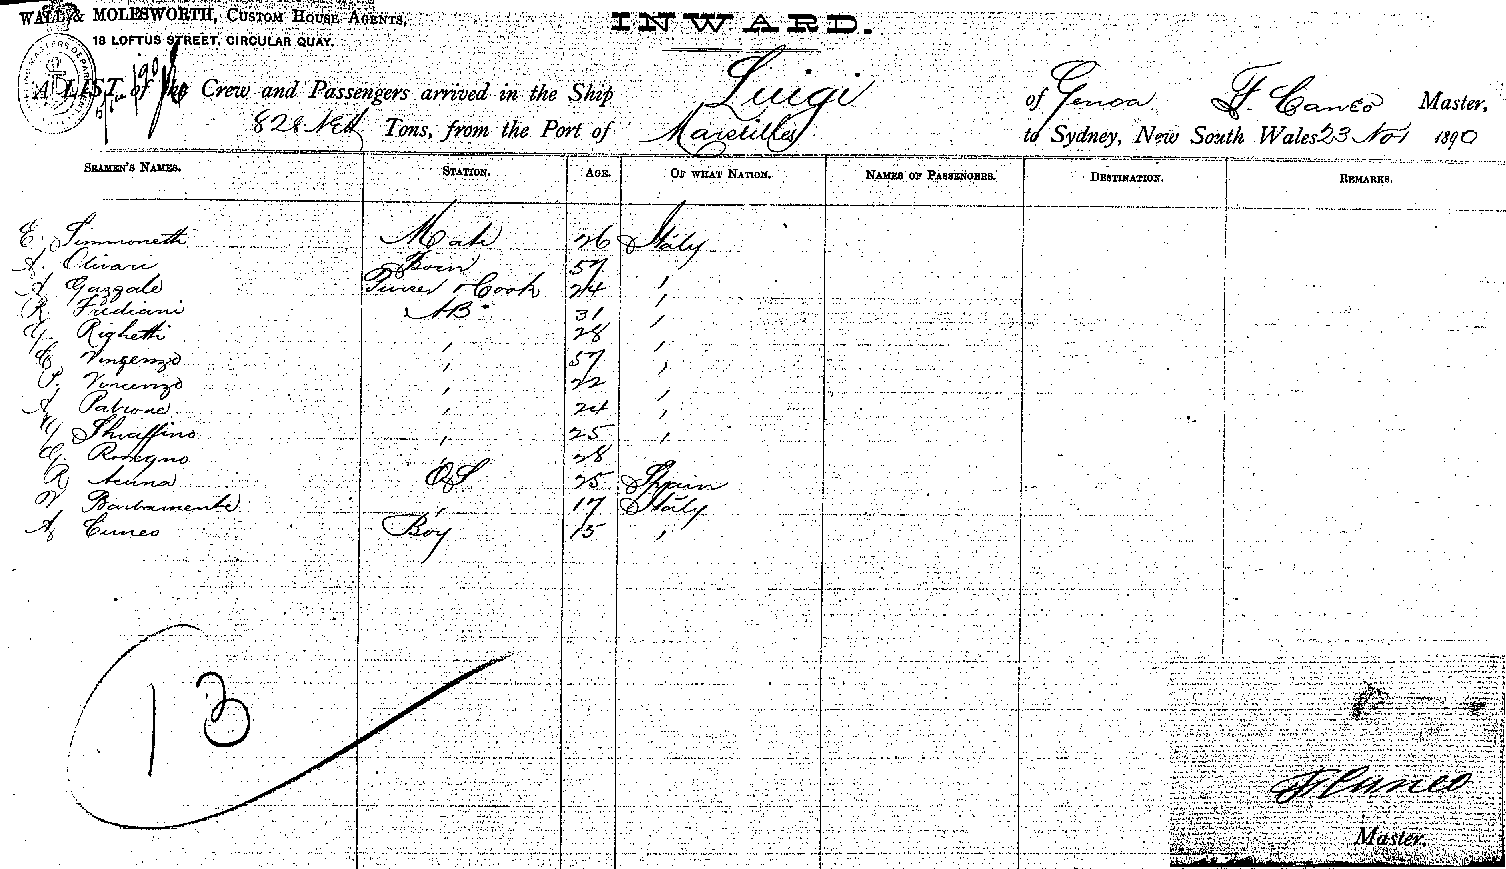 WALL & MOLESWORTH, CUSTOM HOUSE AGENTS,
18 LOFTUS STREET, CIRCULAR QUAY.
INWARD.
A LIST of the Crew and Passengers arrived in the Ship Luigi of Genoa F. Cuneo Master.
828 Net Tons, from the Port of Marseilles to Sydney, New South Wales 23 Nov 1890
SEAMEN'S NAMES. STATION. AGE. OF WHAT NATION. NAMES OF PASSENGERS. DESTINATION. REMARKS.
E. Simmonetti Mate 26 Italy
A. Olivari Bosn 57 "
A Gazzale & Cook 24 "
R. Frediani AB 31 "
G. Righetti " 28 "
E. Vincenzo " 57 "
P. Vincenzo " 22 "
A. Patrone " 24 "
G Schiaffino " 25 "
G. 28
R Acuna OS 25 Spain
Barbamente " 17 Italy
A. Cuneo Boy 15 "
13
F Cuneo
Master.